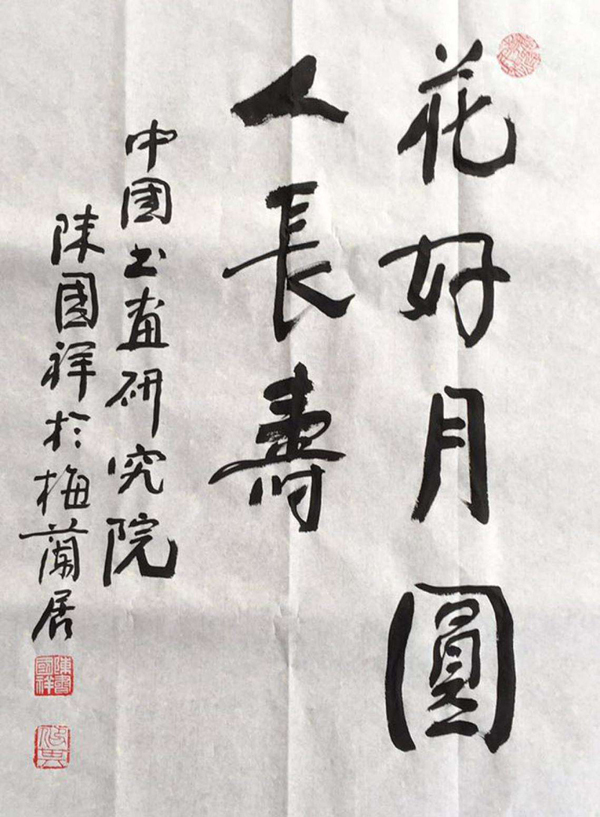 花好月圓
人長壽
中国书画研究院
陳國祥於梅蘭居